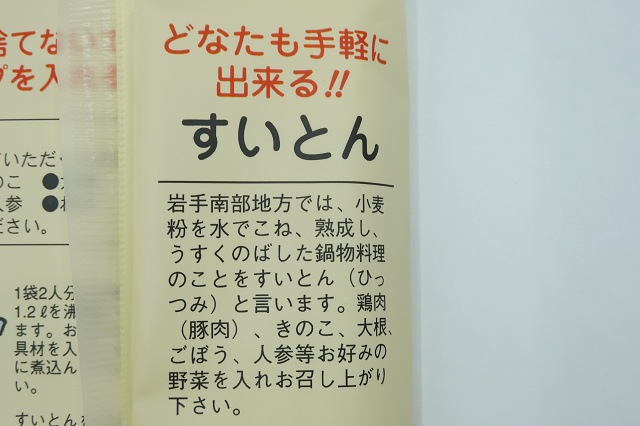 どなたも手軽に
出来る!!
すいとん
岩手南部地方では、小麦
粉を水でこね、熟成し、
うすくのばした鍋物料理
のことをすいとん（ひっ
つみ）と言います。鶏肉
（豚肉）、きのこ、大根、
ごぼう、人参等お好みの
野菜を入れお召し上がり
下さい。
捨てない
プを入
ていただく
のこ ●
人参 ●
ださい。
1袋2人分
1.2ℓを沸
ます。お
具材を入
に煮込ん
い。
すいとん